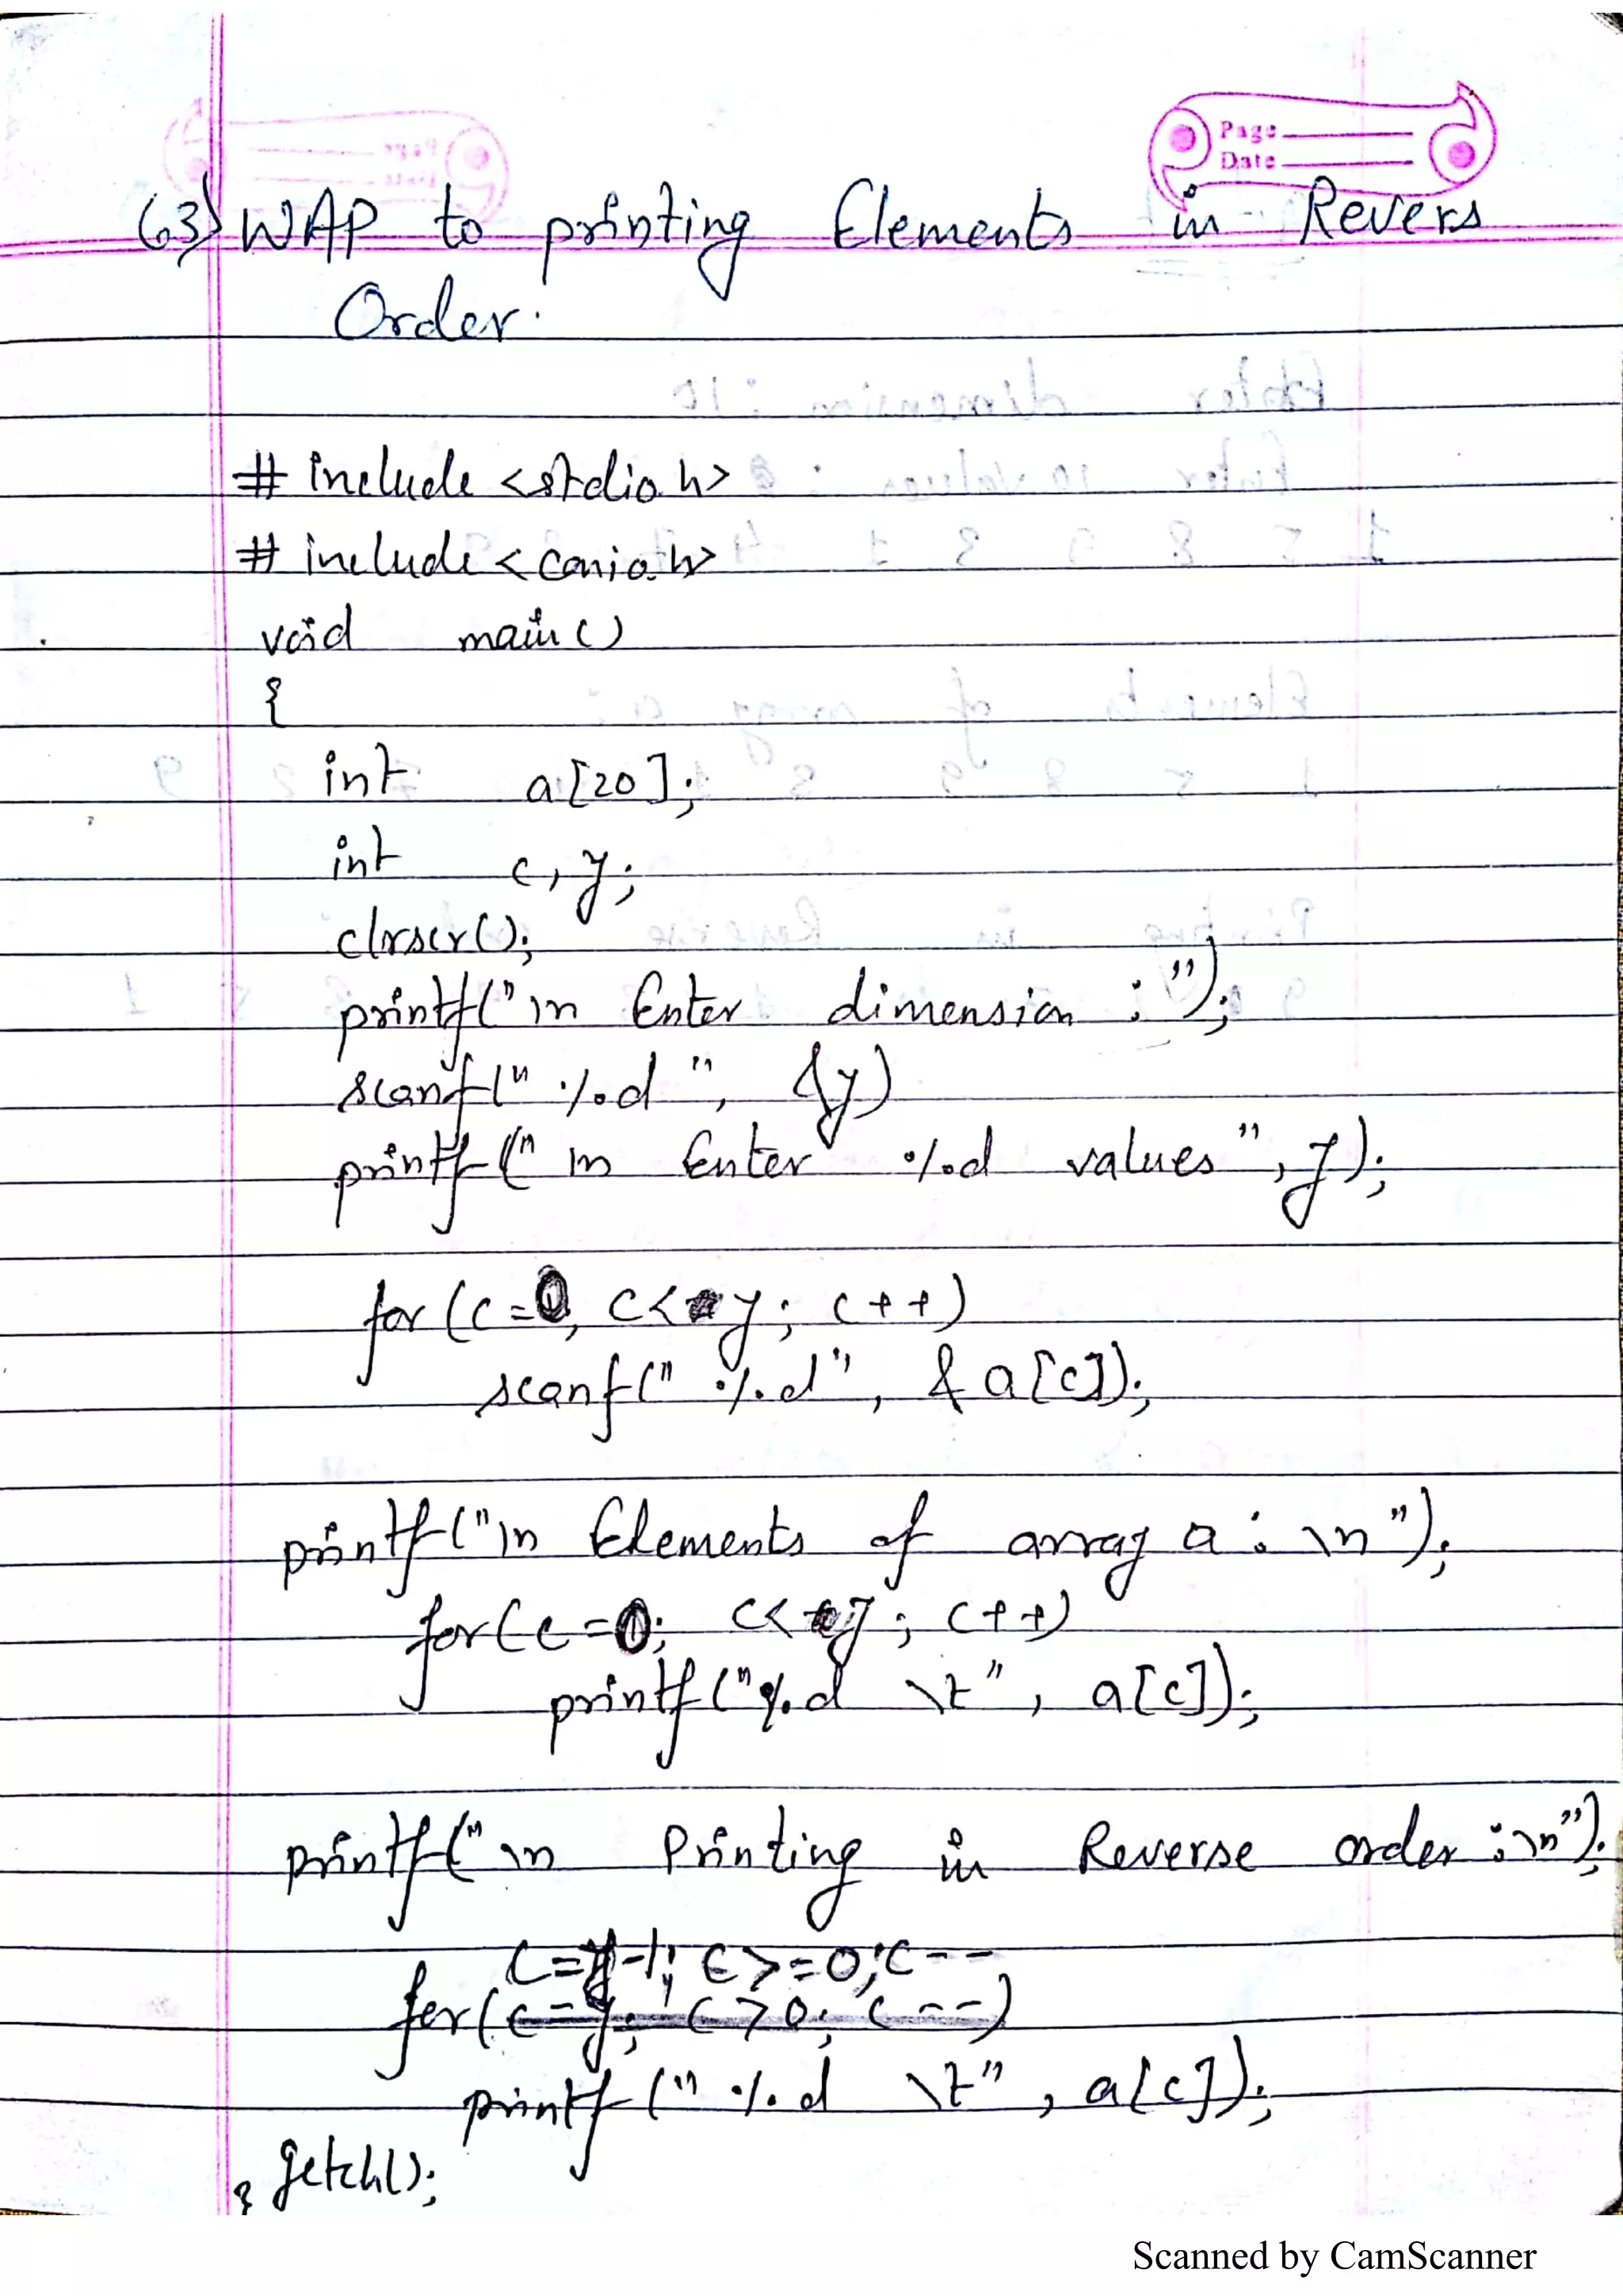 Page
Date
63) WAP to printing Elements in Revers
Order.
# include <stdio.h>
# include <conio.h>
void main()
{
int a[20];
int c, y;
clrscr();
printf("\n Enter dimension : ");
scanf(" %d ", &y)
printf(" \n Enter %d values ", y);
for (c=0, c<y; c++)
scanf(" %d", & a[c]);
printf("\n Elements of array a : \n ");
for(c=0; c<y; c++)
printf("%d \t", a[c]);
printf(" \n Printing in Reverse order : \n");
c=y-1; c>=0; c--
for(c=y; c>0; c--)
printf (" %d \t", a[c]);
} getch();
Scanned by CamScanner